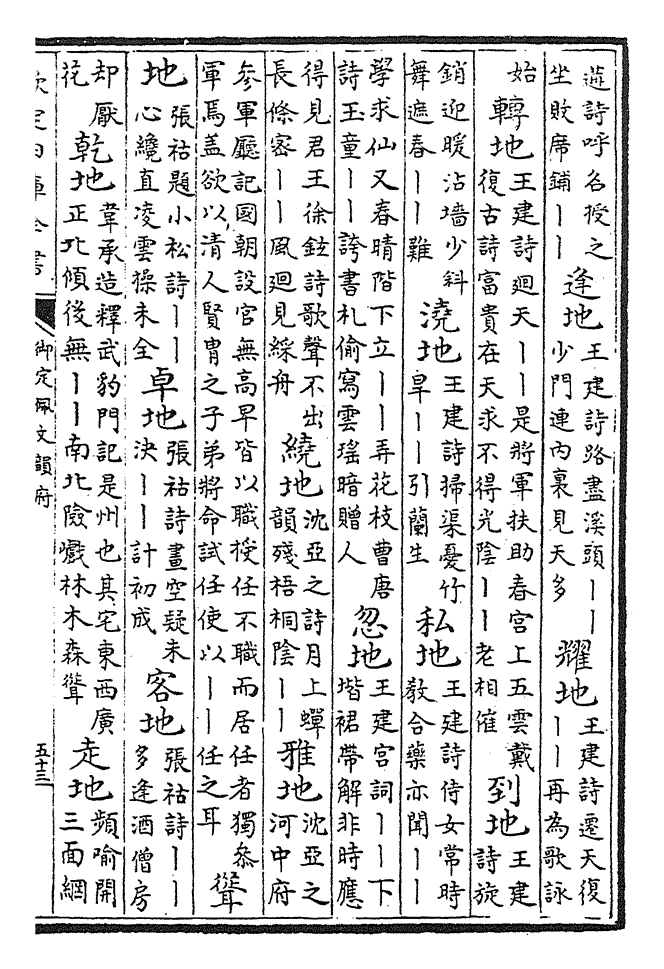 遊詩呼名授之坐敗席鋪丨丨逢地王建詩路盡溪頭丨丨少門連內裏見天多耀地王建詩遷天復丨丨再為歌詠
始轉地王建詩迴天丨丨是將軍扶助春宮上五雲戴復古詩富貴在天求不得光陰丨丨老相催到地王建詩旋
銷迎暖沾墻少斜舞遮春丨丨難澆地王建詩掃渠憂竹旱丨丨引蘭生私地王建詩侍女常時教合藥亦聞丨丨
學求仙又春晴階下立丨丨弄花枝曹唐詩玉童丨丨誇書札偷寫雲瑶暗贈人忽地王建宮詞丨丨下堦裙帶解非時應
得見君王徐鉉詩歌聲不出長條宻丨丨風廻見綵舟繞地沈亞之詩月上蟬韻殘梧桐陰丨丨雅地沈亞之河中府
參軍廳記國朝設官無高卑皆以職授任不職而居任者獨叅軍焉盖欲以清人賢胄之子弟將命試任使以丨丨任之耳聳
地張祜題小松詩丨丨心纔直凌雲操未全卓地張祜詩畫空疑未決丨丨計初成客地張祜詩丨丨多逢酒僧房
却厭花乾地韋承造釋武豹門記是州也其宅東西廣正北傾後無丨丨南北險巘林木森聳走地頻喻開三面網
欽定四庫全書
御定佩文韻府
五十三